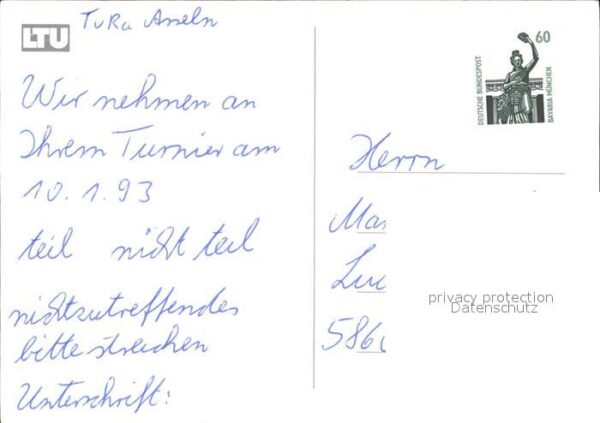 LTU
TuRa Asseln
Wir nehmen an
Ihrem Turnier am
10.1.93
teil nicht teil
nichtzutreffendes
bitte streichen
Unterschrift:
60
DEUTSCHE BUNDESPOST
BAVARIA MÜNCHEN
Herrn
Mas
Luc
586
privacy protection
Datenschutz